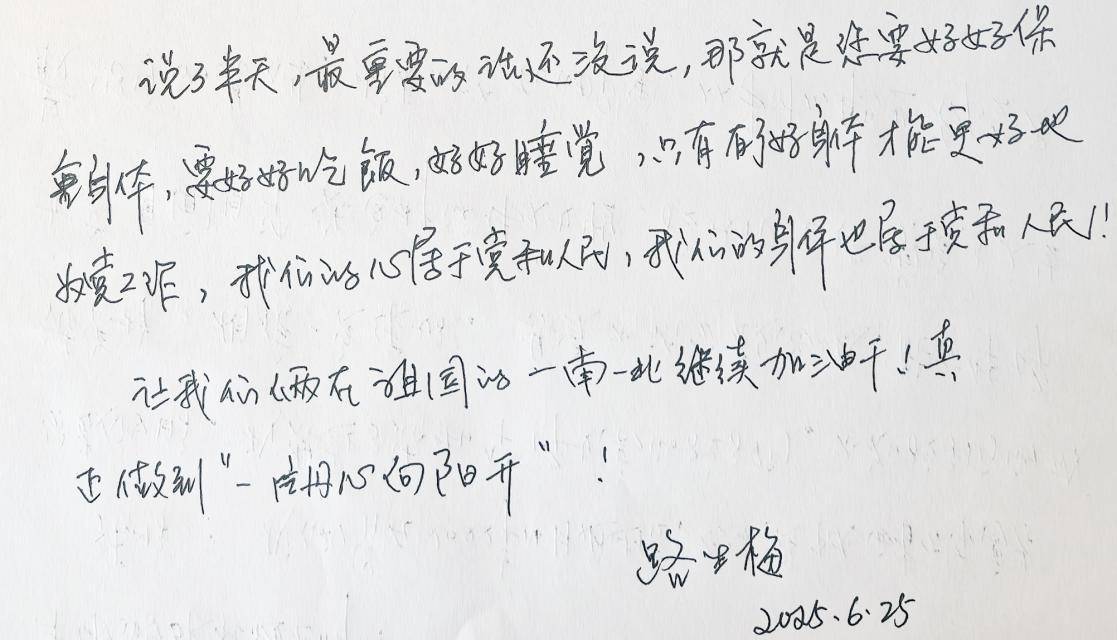 说了半天,最重要的话还没说,那就是您要好好保
重身体,要好好吃飯,好好睡觉,只有有了好身体才能更好地
去工作,我们的心属于党和人民,我们的身体也属于党和人民!
让我们俩在祖国的一南一北继续加油干!真
正做到"一片丹心向阳开"!
路生梅
2025.6.25